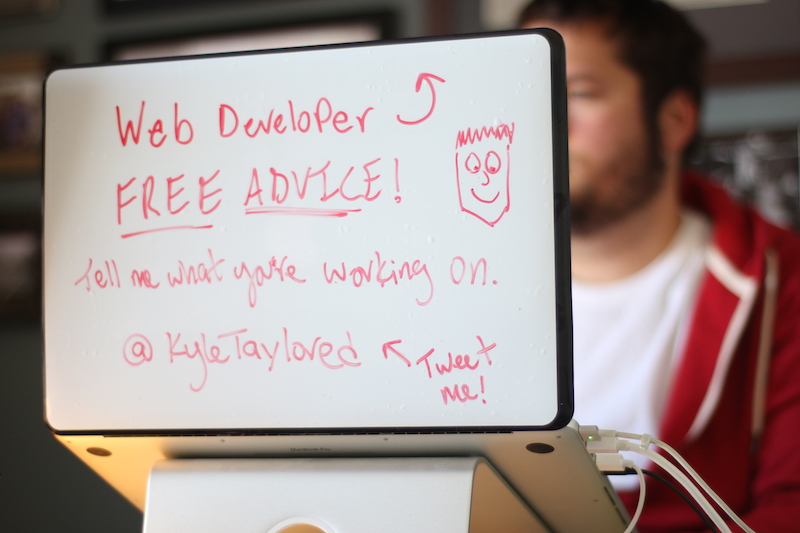 Web Developer
FREE ADVICE!
Tell me what you're working on.
@KyleTaylored
Tweet
me!
MacBook Pro